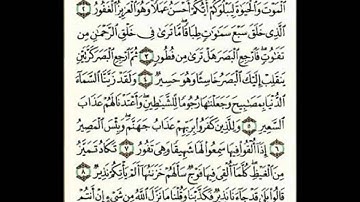 الْمَوْتَ وَالْحَيَوٰةَ لِيَبْلُوَكُمْ أَيُّكُمْ أَحْسَنُ عَمَلًا وَهُوَ الْعَزِيزُ الْغَفُورُ ٢
الَّذِى خَلَقَ سَبْعَ سَمَـٰوَٰتٍ طِبَاقًا مَّا تَرَىٰ فِى خَلْقِ الرَّحْمَـٰنِ مِن
تَفَـٰوُتٍ فَارْجِعِ الْبَصَرَ هَلْ تَرَىٰ مِن فُطُورٍ ٣ ثُمَّ ارْجِعِ الْبَصَرَ كَرَّتَيْنِ
يَنقَلِبْ إِلَيْكَ الْبَصَرُ خَاسِئًا وَهُوَ حَسِيرٌ ٤ وَلَقَدْ زَيَّنَّا السَّمَآءَ
الدُّنْيَا بِمَصَـٰبِيحَ وَجَعَلْنَـٰهَا رُجُومًا لِّلشَّيَـٰطِينِ وَأَعْتَدْنَا لَهُمْ عَذَابَ
السَّعِيرِ ٥ وَلِلَّذِينَ كَفَرُوا بِرَبِّهِمْ عَذَابُ جَهَنَّمَ وَبِئْسَ الْمَصِيرُ
٦ إِذَآ أُلْقُوا فِيهَا سَمِعُوا لَهَا شَهِيقًا وَهِىَ تَفُورُ ٧ تَكَادُ تَمَيَّزُ
مِنَ الْغَيْظِ كُلَّمَآ أُلْقِىَ فِيهَا فَوْجٌ سَأَلَهُمْ خَزَنَتُهَآ أَلَمْ يَأْتِكُمْ نَذِيرٌ ٨
قَالُوا بَلَىٰ قَدْ جَآءَنَا نَذِيرٌ فَكَذَّبْنَا وَقُلْنَا مَا نَزَّلَ اللَّهُ مِن شَىْءٍ إِنْ أَنتُمْ